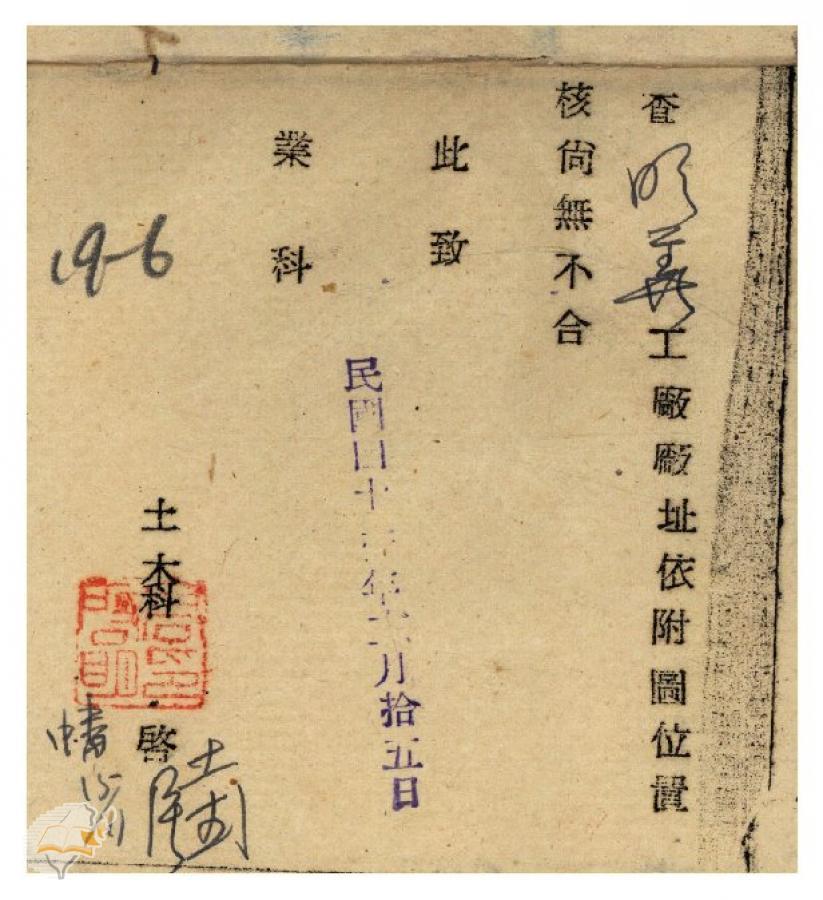 查明義工廠廠址依附圖位置
核尚無不合
此致
業科
民國四十年月拾五日
土木科啓
19-6